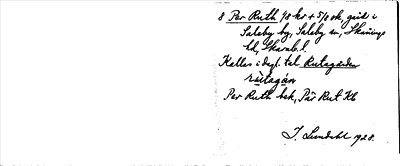 8 Per Ruth 1/8 kr + 5/8 sk, gård i
Saleby by, Saleby sn, Skånings
hd, Skarab. l.
Kallas i dagl. tal Rutagården
rùtagán
Per Ruth bek, Pär Rut Kb
J. Lundahl 1928.